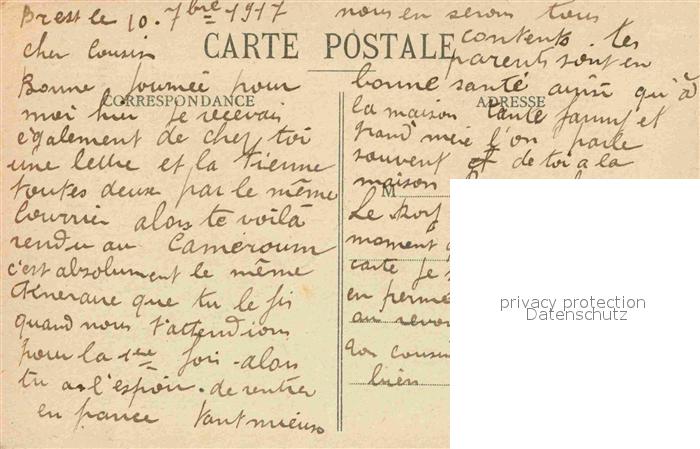 Brest le 10. 7bre 1917
cher Cousin
CARTE POSTALE
Bonne journée pour
CORRESPONDANCE
moi hier je recevais
également de chez toi
une lettre et la tienne
toutes deux par le même
Courrier alors te voilà
rendu au Cameroum
c'est absolument le même
que tu le fis
quand nous t'attendions
pour la 1ere fois. alors
tu as l'espoir. de rentrer
en france tant mieux
nous en serons tous
contents. tes
parents sont en
bonne santé ainsi qu'à
ADRESSE
la maison tante fanny et
grand mère l'on parle
souvent de toi a la
M
maison
Le
moment
carte je
en ferme
au revoi
ton cousin
bien
privacy protection
Datenschutz